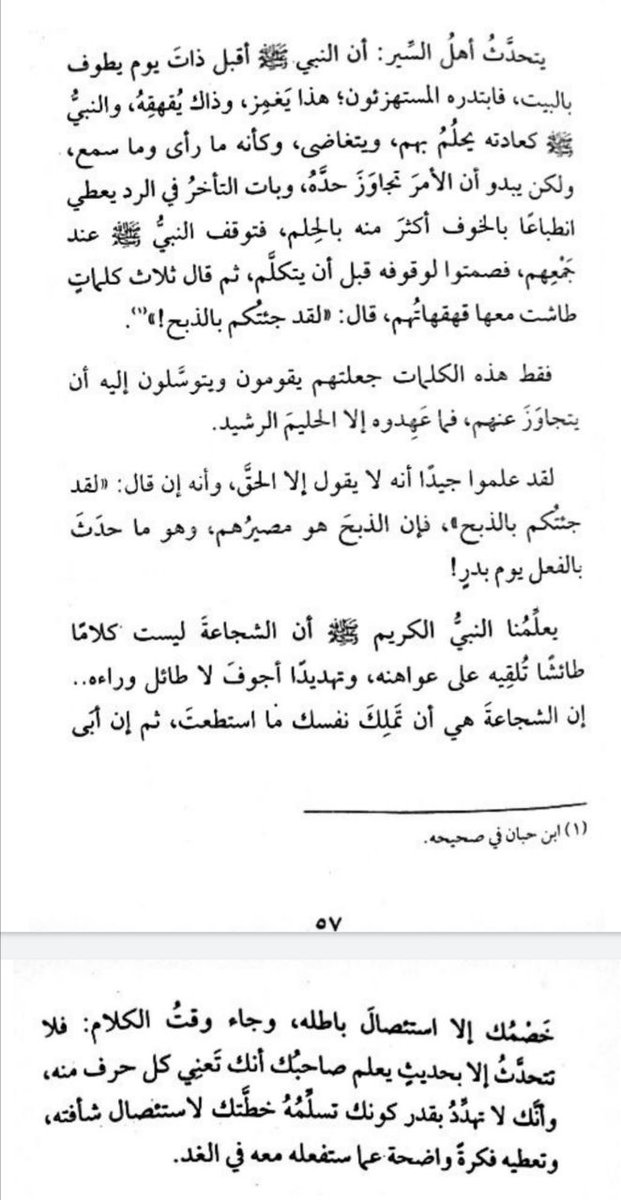 يتحدَّثُ أهلُ السِّير: أن النبي ﷺ أقبل ذاتَ يوم يطوف
بالبيت، فابتدره المستهزئون؛ هذا يَغمِز، وذاك يُقهقِهُ، والنبيُّ
ﷺ كعادته يحلُمُ بهم، ويتغاضى، وكأنه ما رأى وما سمع،
ولكن يبدو أن الأمرَ تجاوَزَ حدَّهُ، وبات التأخرُ في الرد يعطي
انطباعًا بالخوف أكثرَ منه بالحِلم، فتوقف النبيُّ ﷺ عند
جَمْعِهم، فصمتوا لوقوفه قبل أن يتكلَّم، ثم قال ثلاث كلماتٍ
طاشت معها قهقهاتُهم، قال: «لقد جئتُكم بالذبح!»(١).
فقط هذه الكلمات جعلتهم يقومون ويتوسَّلون إليه أن
يتجاوَزَ عنهم، فما عَهِدوه إلا الحليمَ الرشيد.
لقد علموا جيدًا أنه لا يقول إلا الحقَّ، وأنه إن قال: «لقد
جئتُكم بالذبح»، فإن الذبحَ هو مصيرُهم، وهو ما حدَثَ
بالفعل يوم بدرٍ!
يعلِّمُنا النبيُّ الكريم ﷺ أن الشجاعةَ ليست كلامًا
طائشًا تُلقِيه على عواهنه، وتهديدًا أجوفَ لا طائل وراءه..
إن الشجاعةَ هي أن تَملِكَ نفسك ما استطعتَ، ثم إن أبَى
(١) ابن حبان في صحيحه.
٥٧
خَصْمُك إلا استئصالَ باطله، وجاء وقتُ الكلام: فلا
تتحدَّثُ إلا بحديثٍ يعلم صاحبُك أنك تَعنِي كل حرف منه،
وأنَّك لا تهدِّدُ بقدر كونك تسلِّمُهُ خطَّتك لاستئصال شأفته،
وتعطيه فكرةً واضحة عما ستفعله معه في الغد.